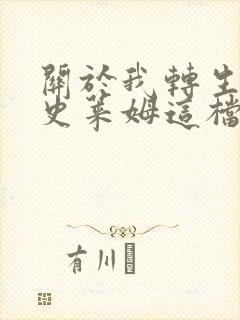 關於我轉生
史萊姆這檔
有川